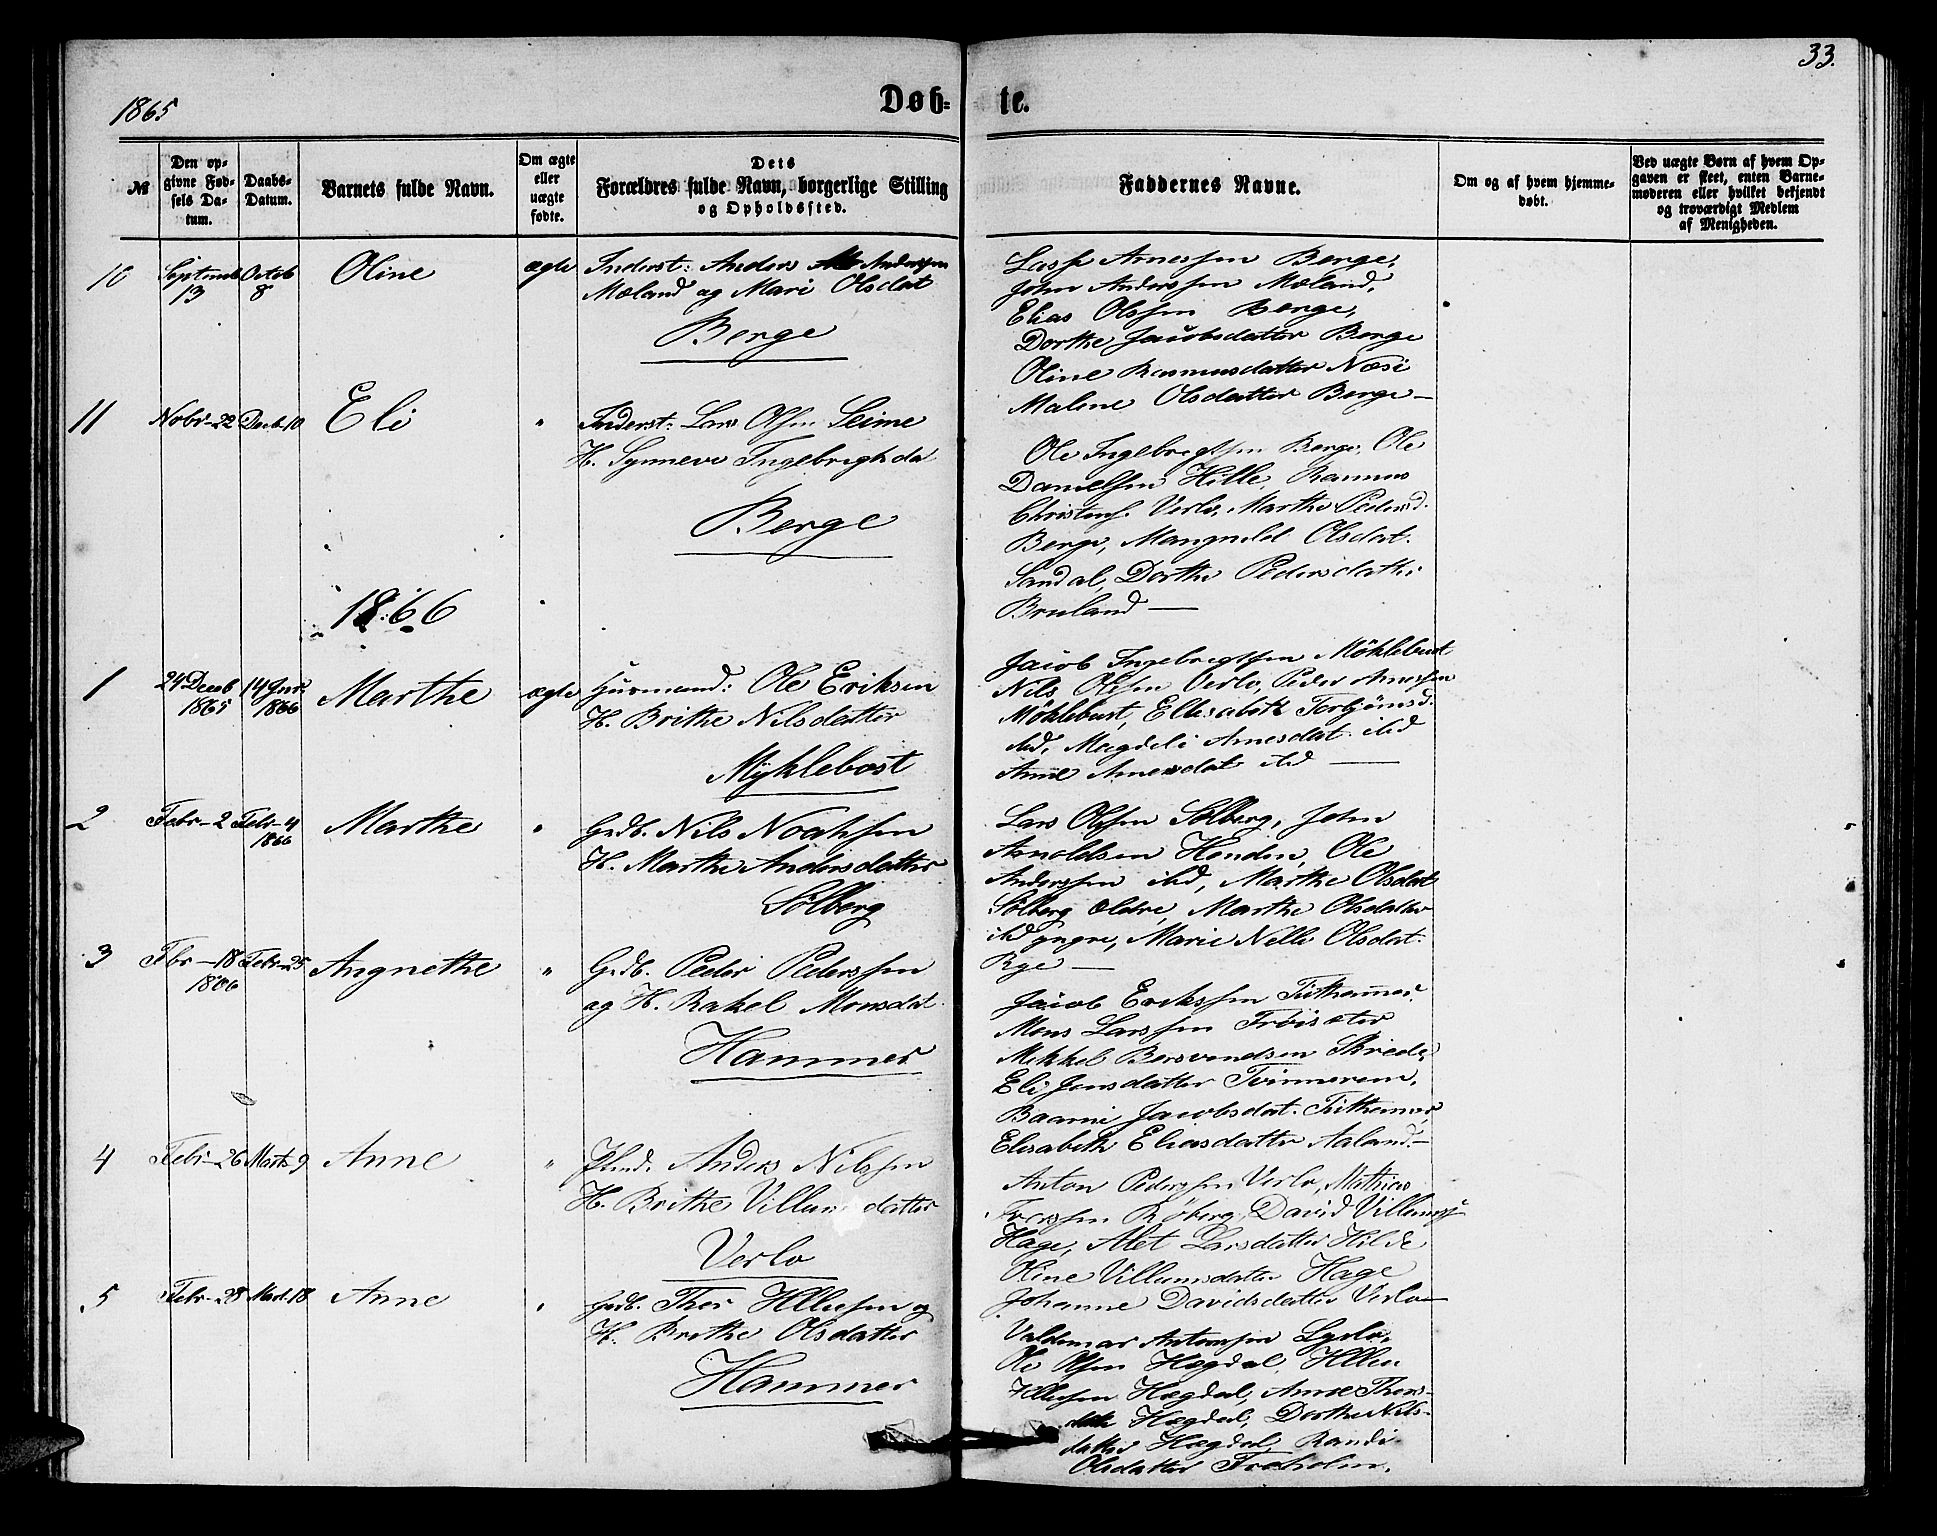 33.
1865
Døb-
te.
№
Den op-
givne Fød-
sels Da-
tum.
Daabs-
Datum.
Barnets fulde Navn.
Om ægte
eller
uægte
fødte.
Dets
Forældres fulde Navn, borgerlige Stilling
og Opholdssted.
Faddernes Navne.
Om og af hvem hjemme-
døbt.
Ved uægte Børn af hvem Op-
gaven er skeet, enten Barne-
moderen eller hvilket bekjendt
og troværdigt Medlem
af Menigheden.
10
Septemb
13
Octob
8
Oline
ægte
Inderst: Anders Anderssen
Mæland og Mari Olsdat
Berge
Lasse Arnessen Berge,
John Anderssen Mæland,
Elias Olssen Berge,
Dorthe Jacobsdatter Berge
Oline Rasmusdatter Næsi
Malene Olsdatter Berge—
11
Nobr-22
Decb-10
Eli
"
Inderst: Lars Olsen Seime
H. Synneve Ingebrigtsda
Berge
Ole Ingebregtsen Berge, Ole
Danielsen Hille, Rasmus
Christens. Verlo, Marthe Pedersd.
Berge, Mangnild Olsdat.
Sandal, Dorthe Pedersdatter
Bruland—
1866
1
24 Decb
1865
14 Jnr.
1866
Marthe
ægte
Huusmand: Ole Eriksen
H. Brithe Nilsdatter
Myklebost
Jacob Ingebregtssen Möklebust
Nils Olssen Verlo, Peder Arnessen
Möklebust, Elisabeth Torbjörnsd.
ibd, Magdeli Arnesdat. ibd
Anne Arnesdat ibd —
2
Febr-2
Febr-4
1866
Marthe
"
Grdb. Nils Noahsen
H. Marthe Andersdatter
Solberg
Lars Olssen Sølberg, John
Arnoldsen Henden, Ole
Anderssen ibd, Marthe Olsdat
Sølberg ældre, Marthe Olsdatter
ibd yngre, Marie Nelle Olsdat.
Rye—
3
Fbr-18
1866
Febr-25
Angnethe
"
Grdb. Peder Pederssen
og H. Rakel Monsdat.
Hammer
Jacob Erikssen Tuthammer
Mons Larssen Frøisæter
Mikkel Bersvendsen Skrede,
Eli Jonsdatter Tvinnerem,
Baarni Jacobsdat. Tuthamer
Elisabeth Eliasdatter Aaland—
4
Febr-26
Marts 9
Anne
"
Plmd. Anders Nilssen
H. Brithe Villumsdatter
Verlo
Anton Pederssen Verlo, Mathias
Røberg, David Villums.
Hage, Alet Larsdatter Hilde
Oline Villumsdatter Hage
Johanne Davidsdatter Verlo—
5
Febr-28
Mart. 18
Anne
"
Grdb. Thor Illessen og
H. Brithe Olsdatter
Hammer
Valdemar Antonssen Lyslo,
Ole Olsen Hægdal, Illen
Illessen Hægdal, Anne Thors-
datter Hægdal, Dorthe Nils-
datter Hægdal, Randi
Olsdatter Froholm.